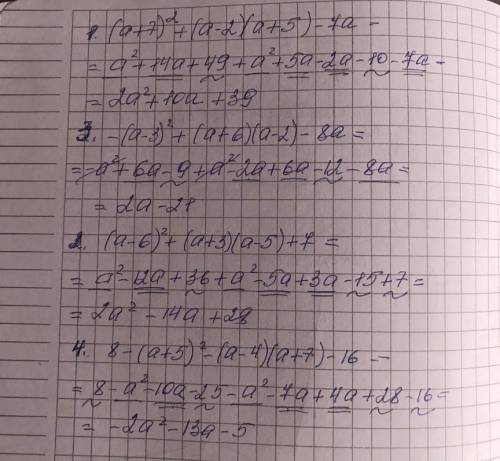 1. (a+7)²+(a-2)(a+5)-7a -
= a²+14a+49+a²+5a-2a-10-7a-
= 2a²+10a+39
3. -(a-3)²+(a+6)(a-2)-8a=
= -a²+6a-9+a²-2a+6a-12-8a=
= 2a-21
2. (a-6)²+(a+3)(a-5)+7 =
= a²-12a+36+a²-5a+3a-15+7=
= 2a²-14a+28
4. 8-(a+5)²-(a-4)(a+7)-16 -
= 8-a²-10a-25-a²-7a+4a+28-16=
= -2a²-13a-5